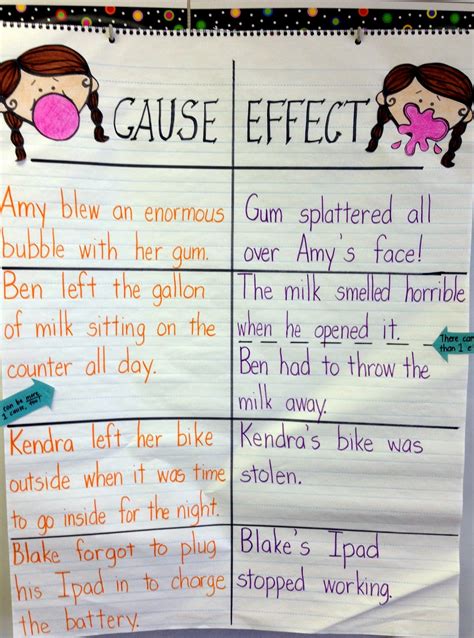 CAUSE EFFECT
Amy blew an enormous
bubble with her gum.
Gum splattered all
over Amy's face!
Ben left the gallon
of milk sitting on the
counter all day.
The milk smelled horrible
when he opened it.
Ben had to throw the
milk away.
There can
than 1 e
can be more
1 cause, too!
Kendra left her bike
outside when it was time
to go inside for the night.
Kendra's bike was
stolen.
Blake forgot to plug
his Ipad in to charge
the battery.
Blake's Ipad
stopped working.